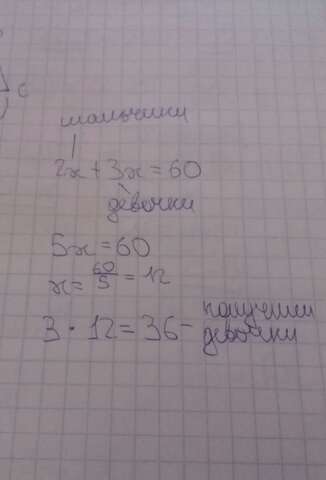 мальчики
2х + 3х = 60
девочки
5х = 60
х = 60/5 = 12
3 · 12 = 36 - получили
девочки